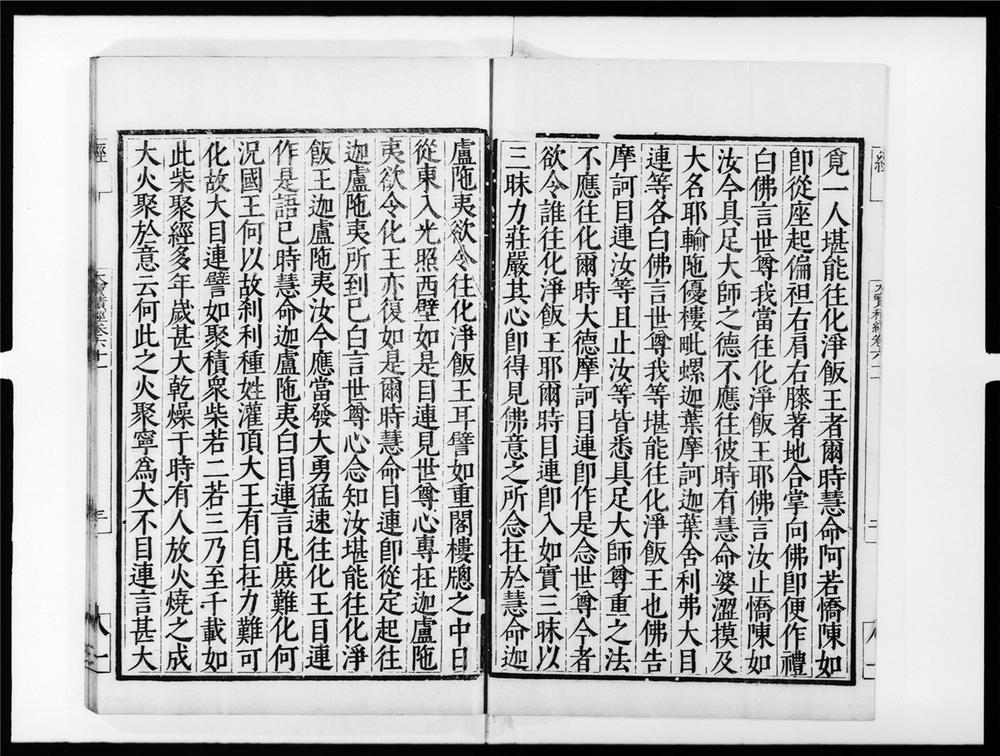 覓一人堪能往化淨飯王者爾時慧命阿若憍陳如
卽從座起偏袒右肩右膝著地合掌向佛卽便作禮
白佛言世尊我當往化淨飯王耶佛言汝止憍陳如
汝今具足大師之德不應往彼時有慧命婆澀摸及
大名耶輸陁優樓毗螺迦葉摩訶迦葉舍利弗大目
連等各白佛言世尊我等堪能往化淨飯王也佛告
摩訶目連汝等且止汝等皆悉具足大師尊重之法
不應往化爾時大德摩訶目連卽作是念世尊今者
欲令誰往化淨飯王耶爾時目連卽入如實三昧以
三昧力莊嚴其心卽得見佛意之所念在於慧命迦
盧陁夷欲令往化淨飯王耳譬如重閣樓牕之中日
從東入光照西壁如是目連見世尊心專在迦盧陁
夷欲令化王亦復如是爾時慧命目連卽從定起往
迦盧陁夷所到已白言世尊心念知汝堪能往化淨
飯王迦盧陁夷汝今應當發大勇猛速往化王目連
作是語已時慧命迦盧陁夷白目連言凡庶難化何
況國王何以故刹利種姓灌頂大王有自在力難可
化故大目連譬如聚積衆柴若二若三乃至千載如
此柴聚經多年歲甚大乾燥于時有人放火燒之成
大火聚於意云何此之火聚寧爲大不目連言甚大